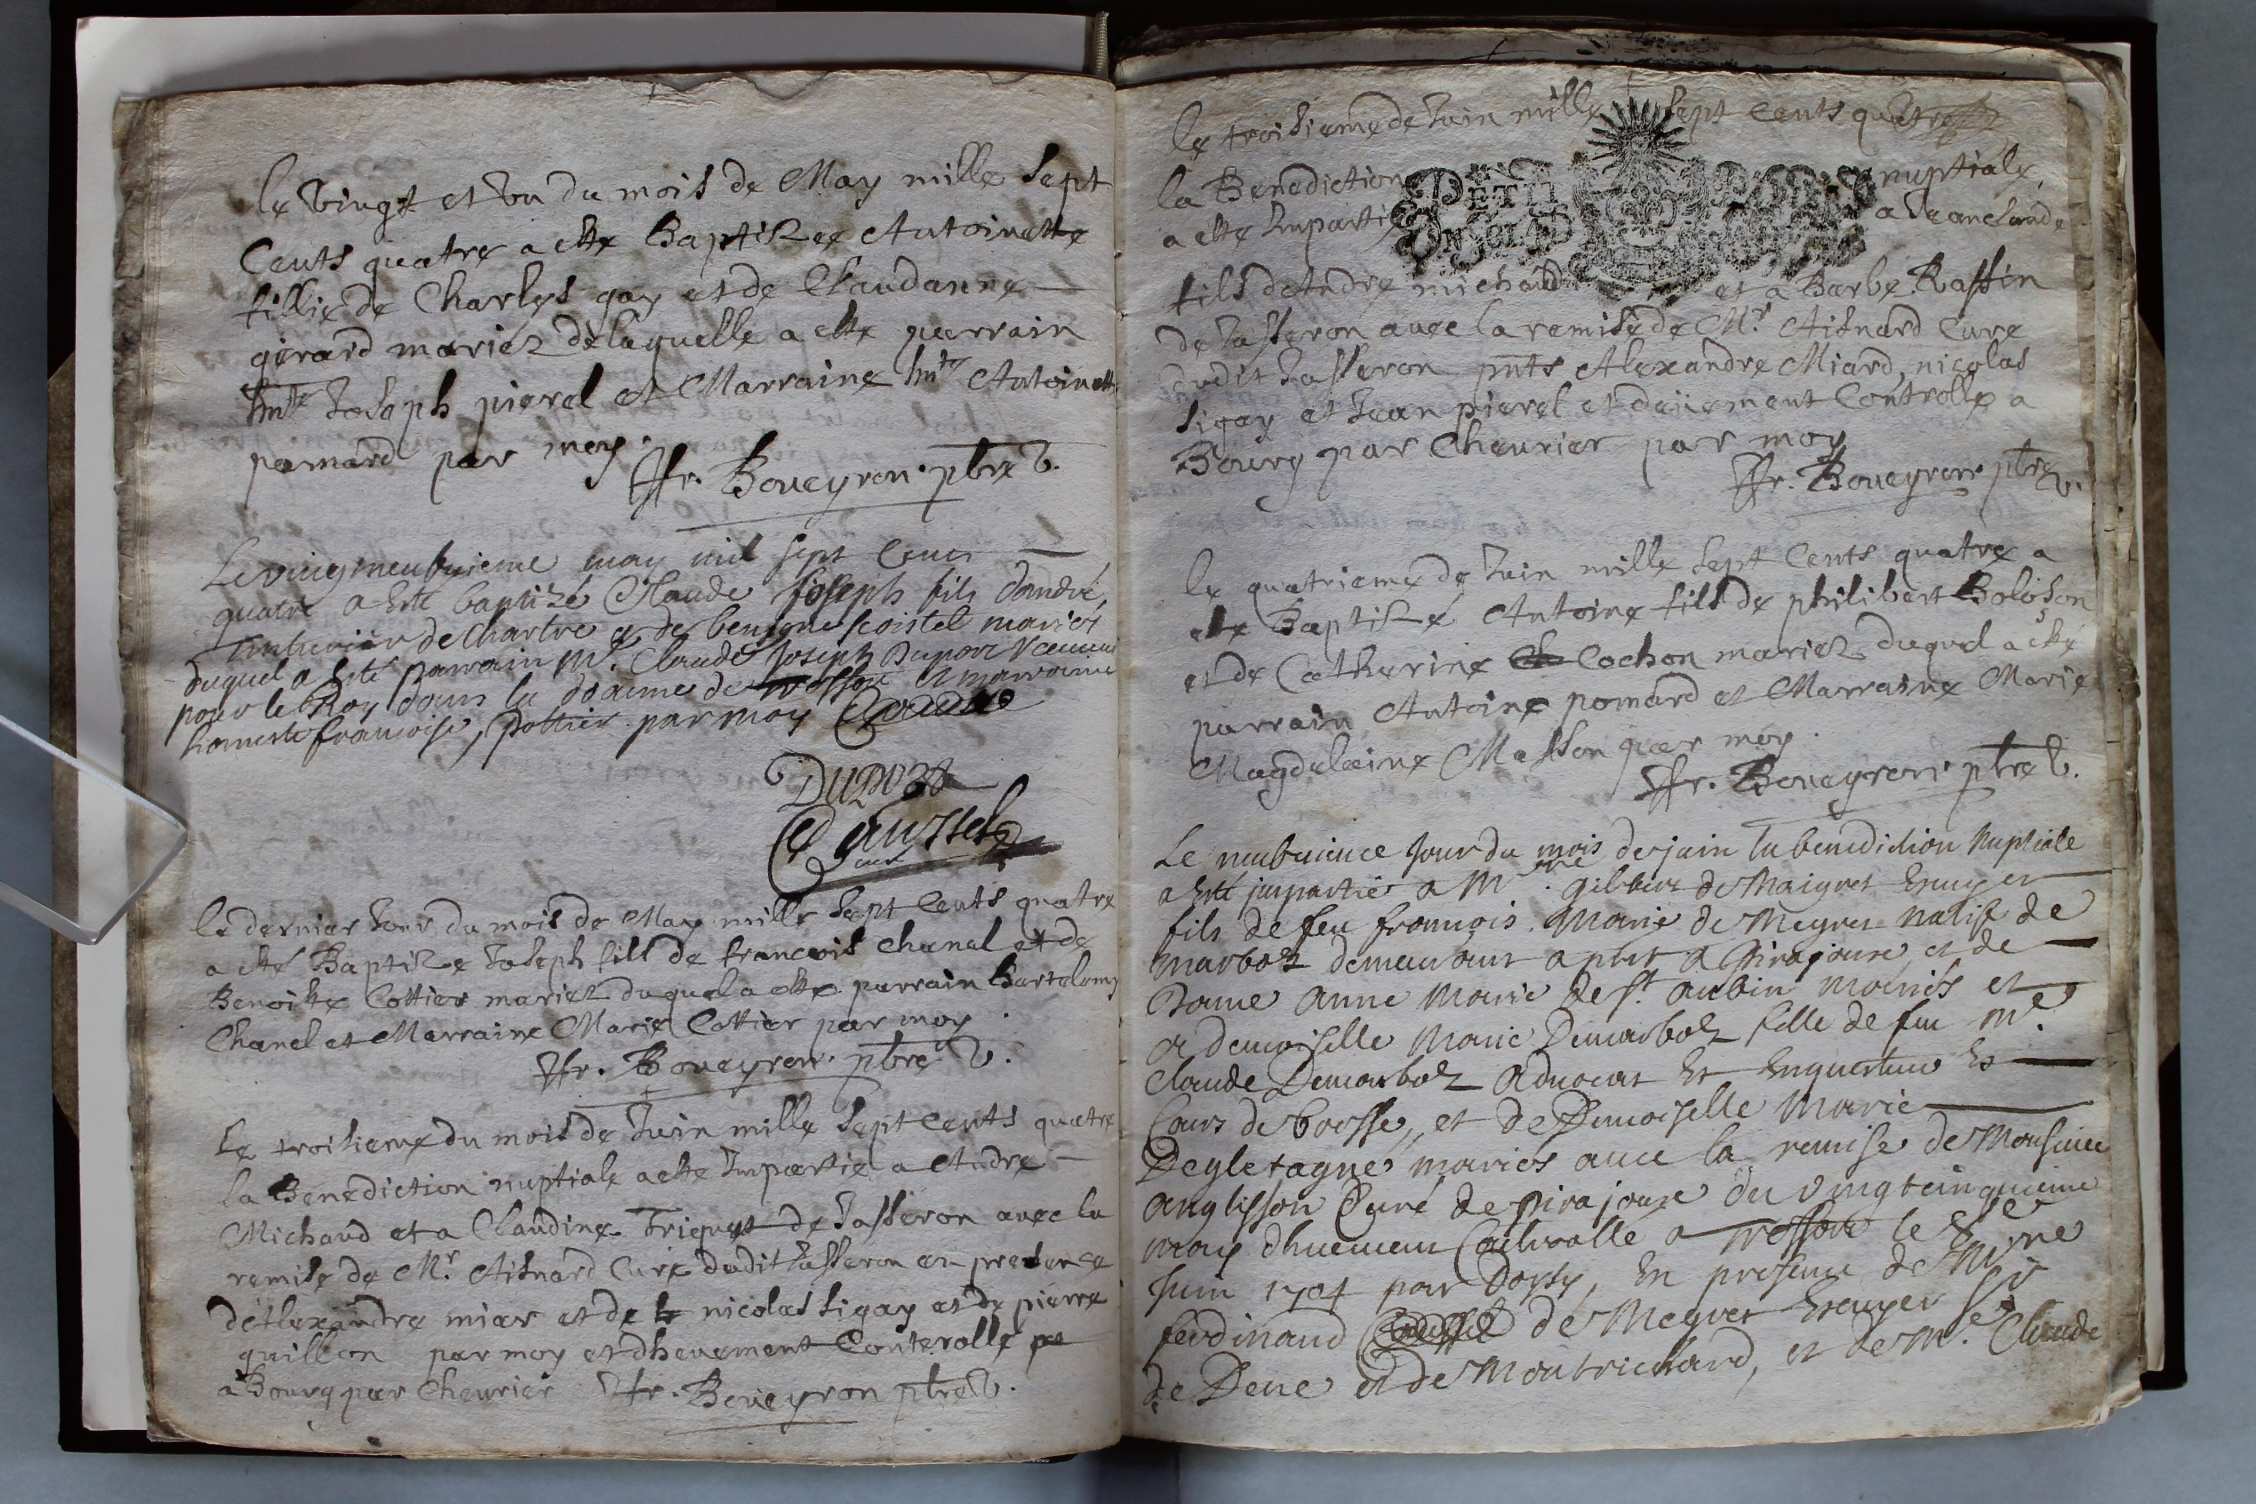 le vingt et vn du mois de May mille sept
Cents quatre a este Baptizee Antoinette
fillie de Charles gay et de Claudanne
gerard mariez delaquelle a este parrain
hnte Joseph pierel et Marraine hnte Antoinette
pamard par moy.
ffr. Boueyron ptre v.
Le vingt neufuieme may mil sept Cens
quatre a esté baptizé Claude Joseph fils dandré
de Chartre et de benigne mariés
duquel a esté parrain Mr. Claude Joseph Duport
pour le Roy dans la doanne de et marraine
honneste francoise pottier par moy
DUPORT
Gaussel
curé
le dernier Jour du mois de May mille Sept Cents quatre
a esté Baptize Joseph fils de francois Chanel et de
Benoiste Cottier mariez duquel a este parrain Bartelomy
Chanel et Marraine Marie Cottier par moy.
ffr. Boueyron ptre v.
Le troisieme du mois de Juin mille Sept Cents quatre
la Benediction nuptiale a este Impartie a Andre
Michaud et a Claudine Triquet de Jasseron avec la
remise de Mr. Aisnard Curé dudit Jasseron en presence
d'Alexandre miar et de nicolas sigay et de pierre
quillon par moy et dheuement Conterolle
a Bourg par Cheurier ffr. Boueyron ptre v.
le troisieme de Juin mille sept cents quatre
la Benediction nuptiale
PETIT
ONCLE
a este Impartie a Jeanclaude
fils d'Andre michaud et a Barbe Raffin
de Jasseron auec la remise de Mr. Aisnard Cure
dudit Jasseron pnts Alexandre Miard, nicolas
sigay et Jean pierel et deüement Controlle a
Bourg par Cheurier par moy
ffr. Boueyron ptre v.
le quatrieme de Juin mille Sept Cents quatre a
este Baptisé Antoine fils de philibert Boloson
et de Catherine Cochon mariez duquel a esté
parrain Antoine pomard et Marraine Marie
Magdelaine Masson par moy.
ffr. Boueyron ptre v.
Le neufuieme Jour du mois de juin la benediction Nuptiale
a esté jmpartie a Mre. gilbert de Maigret Escuyer
fils de feu francois Marie de Megret Natif de
Marboz demeurant a pnt a Pirajoux et de
Dame Anne Marie de St. aubin mariés et
a demoiselle Marie Demarboz fille de feu Me.
Claude Demarboz Aduocat Et Enquesteur Es
Cours de bresse, et de Demoiselle Marie
Degletagne mariés auec la remise de Monsieur
anglisson Curé de Pirajoux du vingtcinquieme
may dhuement Contrerollé a Treffort le 8e
Juin 1704 par Dorsy, En presence de
ferdinand de Megret Escuyer Sr
de Deue et de Montrichard, et de Me. Claude